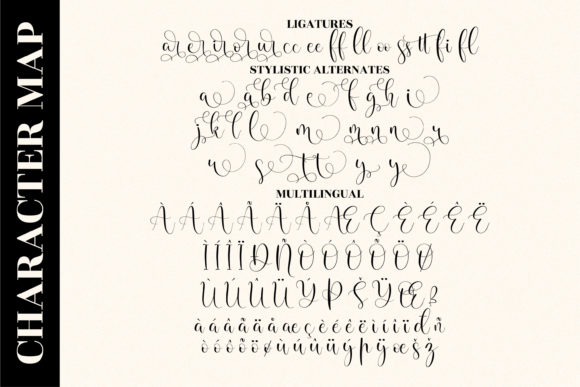 CHARACTER MAP
LIGATURES
ar er ir or ur cc ee ff ll oo ss tt fi fl
STYLISTIC ALTERNATES
a a b d e f g h i
j k l l m m n n r
u s t t y y
MULTILINGUAL
À Á Â Ã Ä Å Æ Ç È É Ê Ë
Ì Í Î Ï Ð Ñ Ò Ó Ô Õ Ö Ø
Ù Ú Û Ü Ý Þ Š Ÿ Œ ß
à á â ã ä å æ ç è é ê ë ì í î ï d ñ
ò ó ô õ ö ø ù ú û ü ý þ ÿ œ š ž